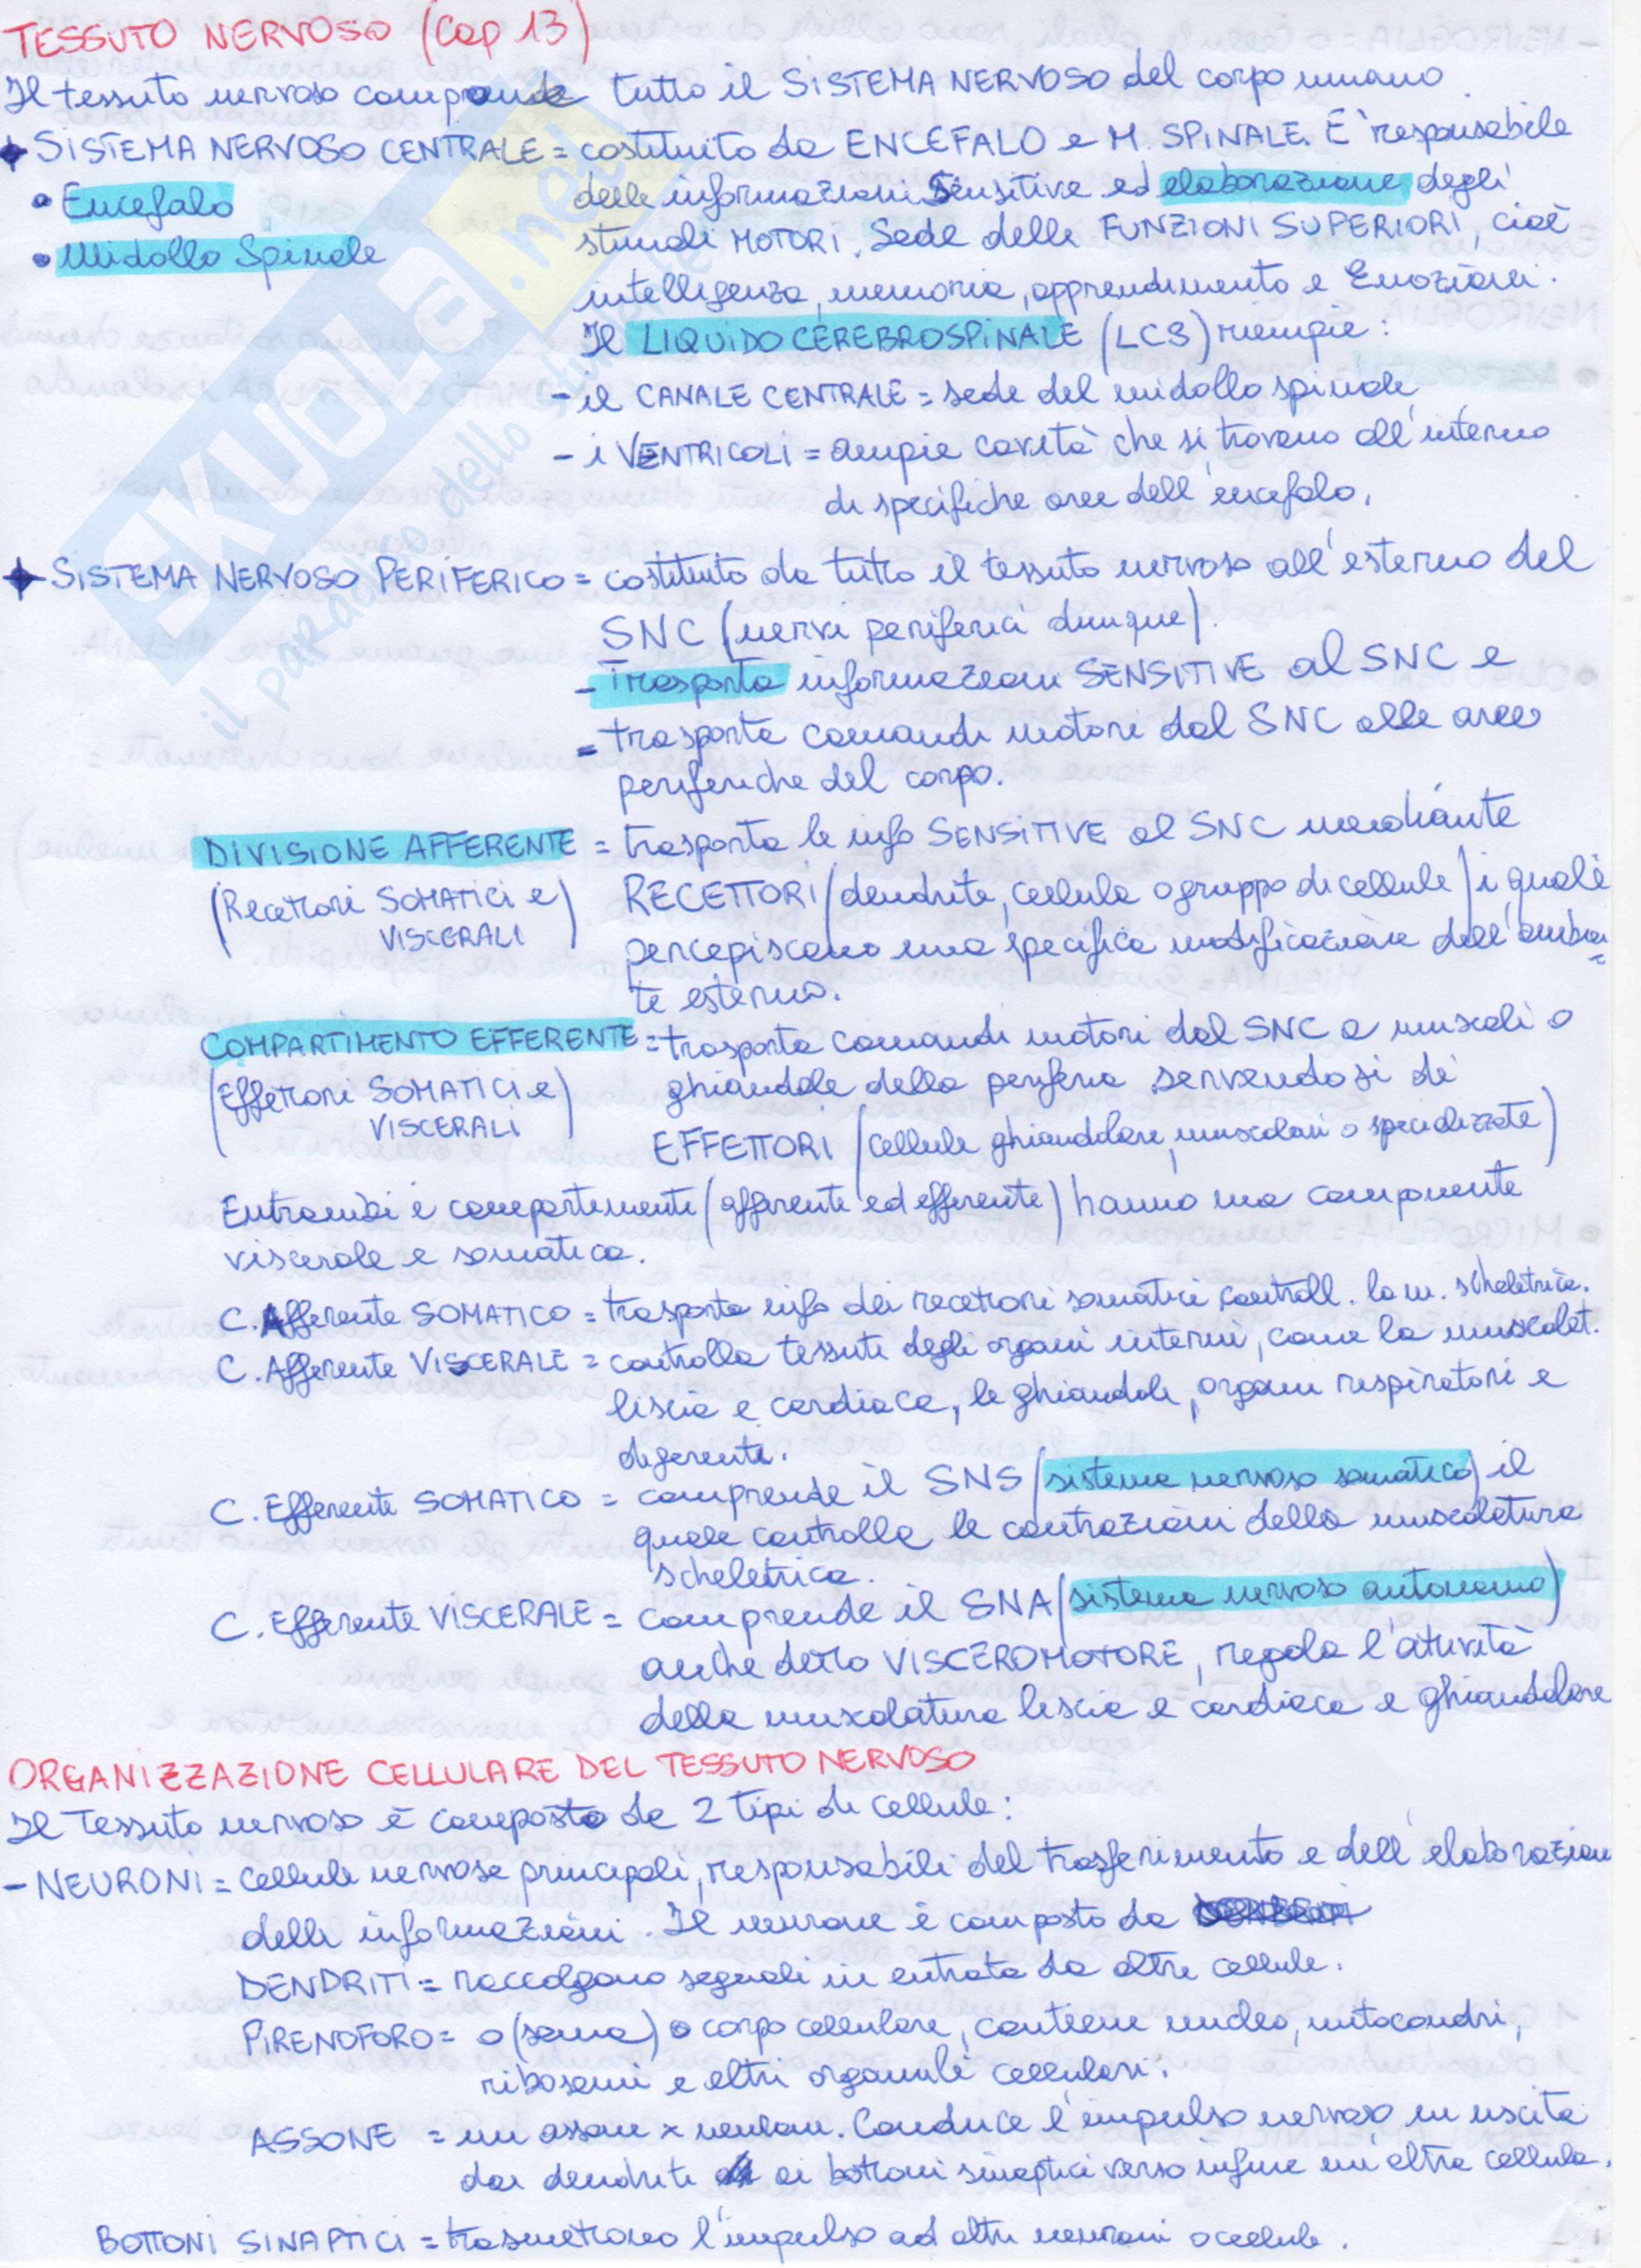 TESSUTO NERVOSO (Cap 13)
Il tessuto nervoso comprende tutto il SISTEMA NERVOSO del corpo umano
SISTEMA NERVOSO CENTRALE = costituito da ENCEFALO e M. SPINALE. E' responsabile
• Encefalo delle informazioni Sensitive ed elaborazione degli
• Midollo Spinale stimoli MOTORI. Sede delle FUNZIONI SUPERIORI, cioè
intelligenza, memoria, apprendimento e Emozioni.
Il LIQUIDO CEREBROSPINALE (LCS) riempie:
- il CANALE CENTRALE = sede del midollo spinale
- i VENTRICOLI = ampie cavità che si trovano all'interno
di specifiche aree dell'encefalo.
SISTEMA NERVOSO PERIFERICO = costituito da tutto il tessuto nervoso all'esterno del
SNC (nervi periferici dunque).
- Trasporta informazioni SENSITIVE al SNC e
- trasporta comandi motori dal SNC alle aree
periferiche del corpo.
DIVISIONE AFFERENTE = trasporta le info SENSITIVE al SNC mediante
(Recettori SOMATICI e VISCERALI) RECETTORI (dendrite, cellula o gruppo di cellule) i quali
percepiscono una specifica modificazione dell'ambien
te esterno.
COMPARTIMENTO EFFERENTE = trasporta comandi motori dal SNC a muscoli o
(Effettori SOMATICI e VISCERALI) ghiandole della periferia servendosi di
EFFETTORI (cellule ghiandolari, muscolari o specializzate)
Entrambi i compartimenti (afferente ed efferente) hanno una componente
viscerale e somatica.
C. Afferente SOMATICO = trasporta info dei recettori somatici controll. la m. scheletrica.
C. Afferente VISCERALE = controlla tessuti degli organi interni, come la muscolat.
liscia e cardiaca, le ghiandole, organi respiratori e
digerenti.
C. Efferente SOMATICO = comprende il SNS (sistema nervoso somatico) il
quale controlla le contrazioni della muscolatura
scheletrica.
C. Efferente VISCERALE = comprende il SNA (sistema nervoso autonomo)
anche detto VISCEROMOTORE, regola l'attività
della muscolatura liscia e cardiaca e ghiandolare
ORGANIZZAZIONE CELLULARE DEL TESSUTO NERVOSO
Il Tessuto nervoso è composto da 2 tipi di cellule:
- NEURONI = cellule nervose principali, responsabili del trasferimento e dell'elaborazion
delle informazioni. Il neurone è composto da
DENDRITI = raccolgono segnali in entrata da altre cellule.
PIRENOFORO = o (soma) o corpo cellulare, contiene nucleo, mitocondri,
ribosomi e altri organuli cellulari.
ASSONE = un assone x neurone. Conduce l'impulso nervoso in uscita
dai dendriti ai bottoni sinaptici verso infine un'altra cellula.
BOTTONI SINAPTICI = trasmettono l'impulso ad altri neuroni o cellule.
SKUOLA.net
il paradiso dello studente